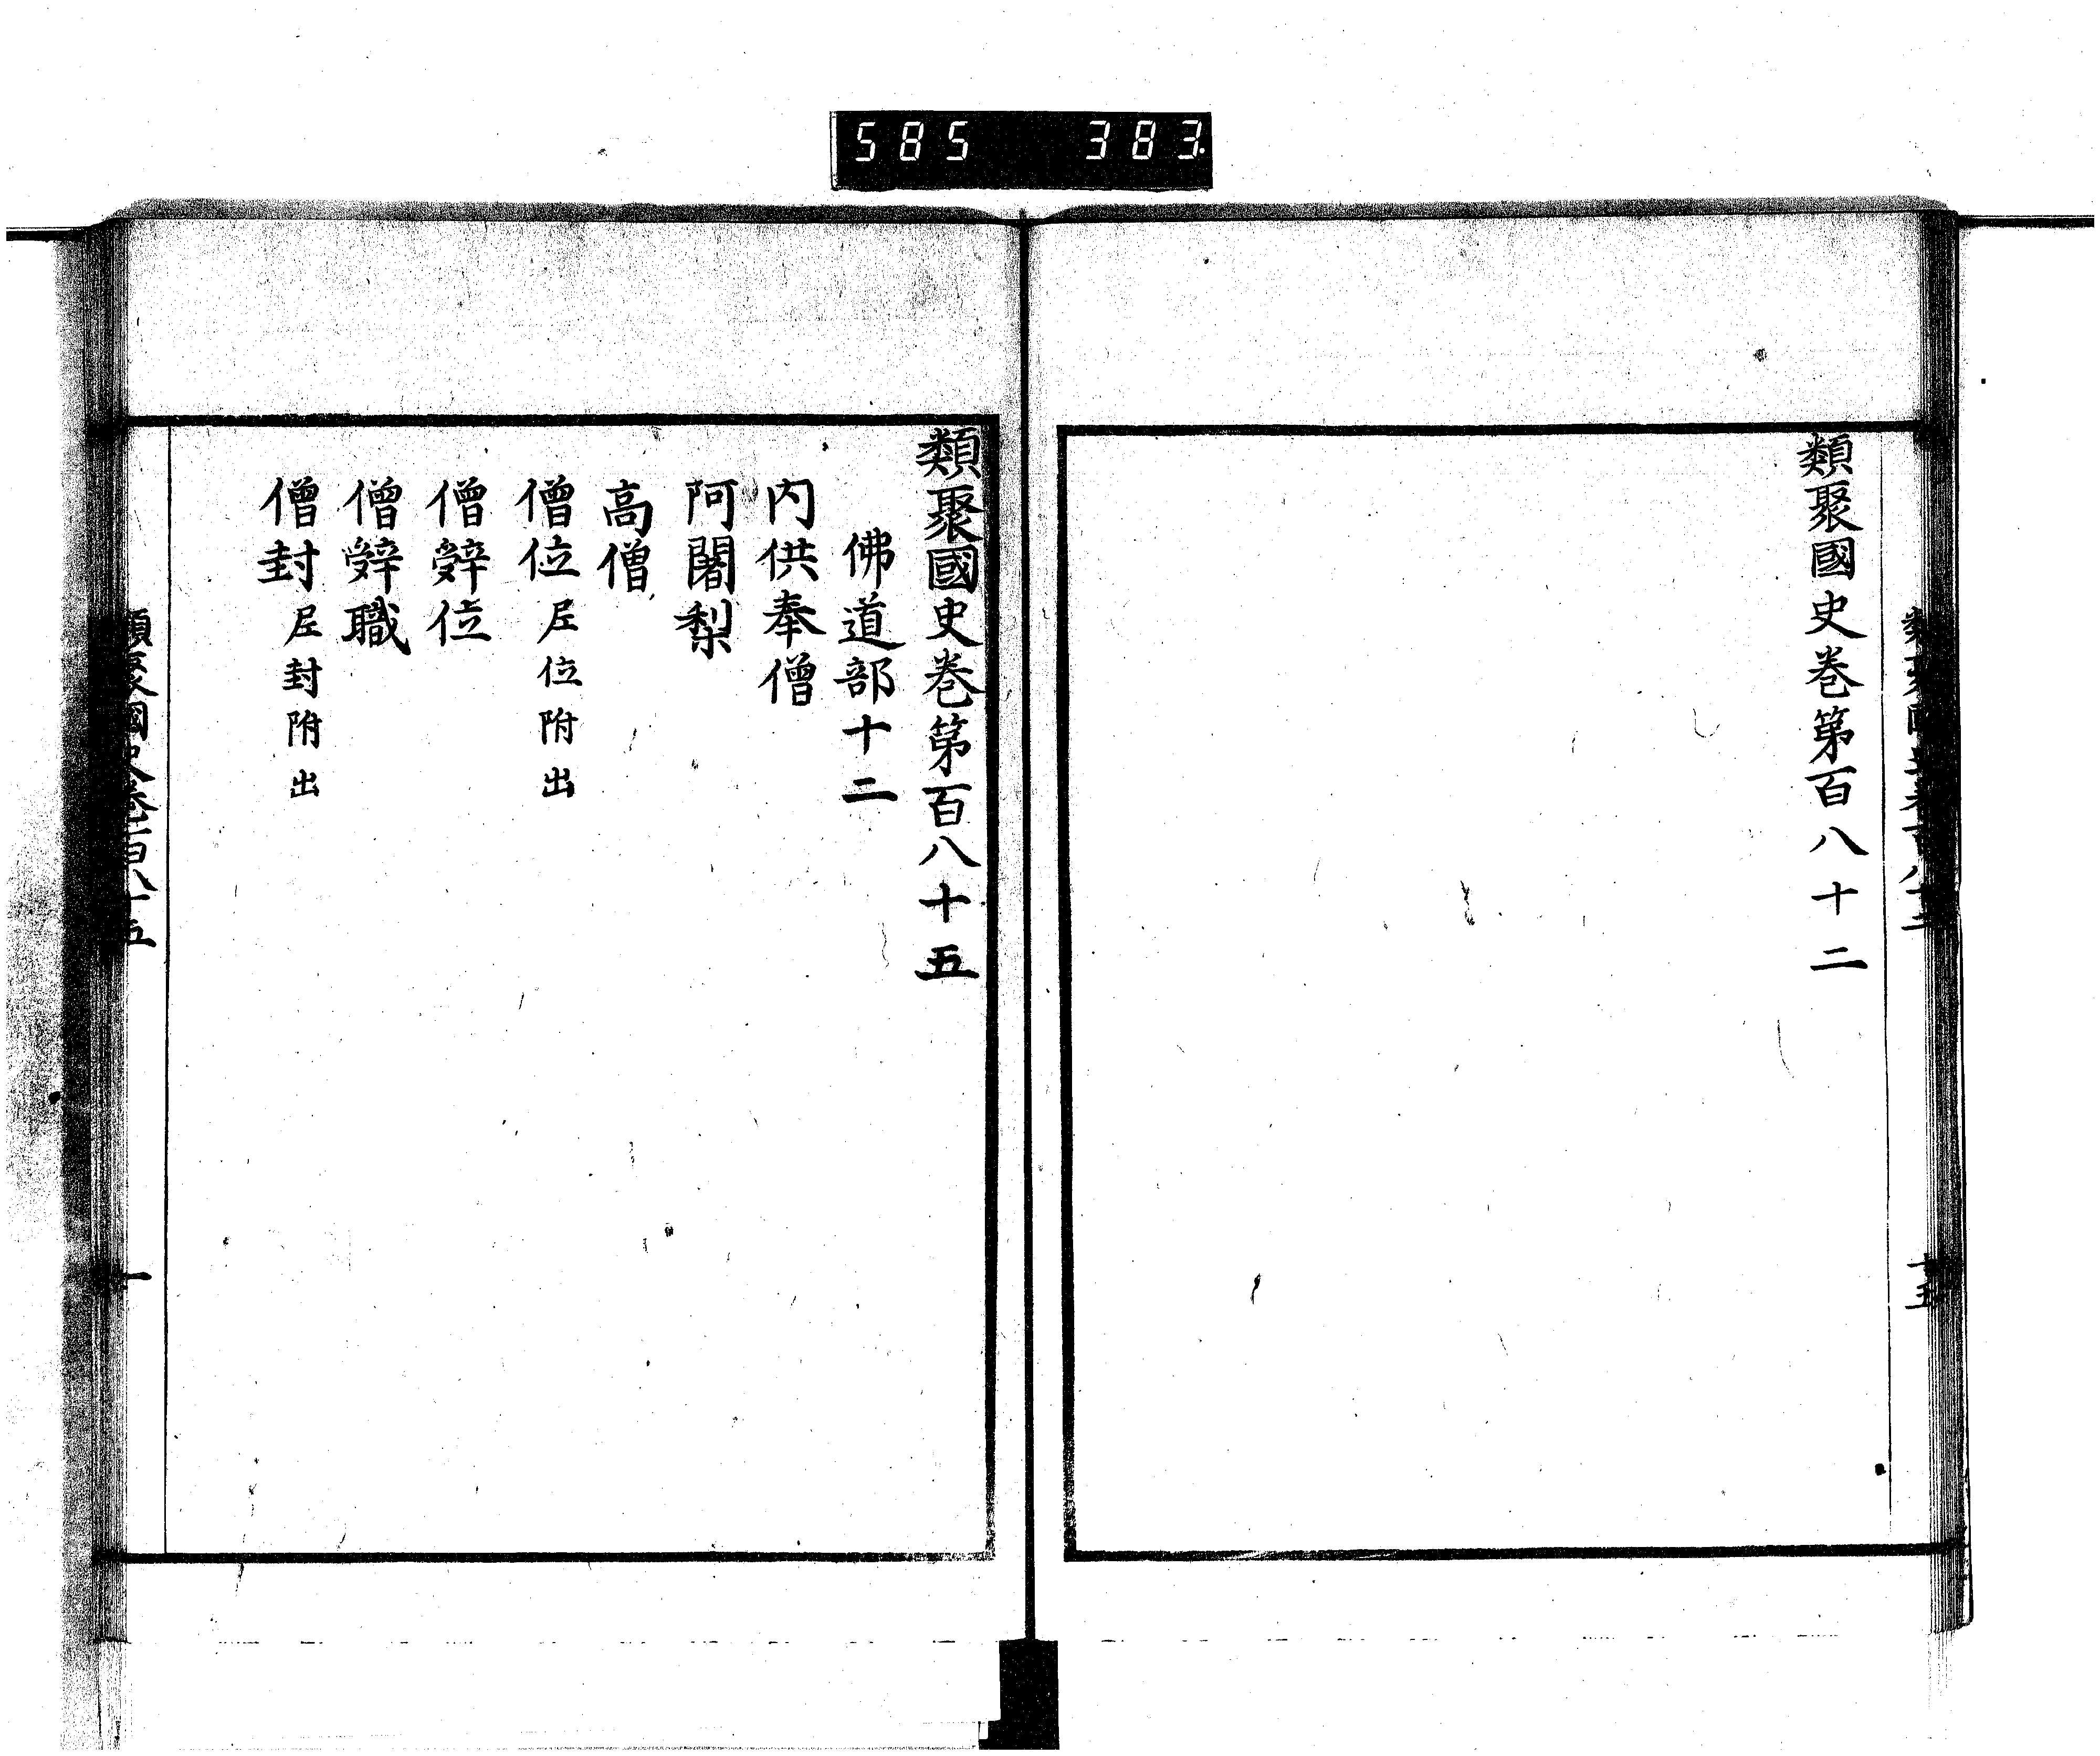 585 383
類聚國史巻第百八十二
十五
類聚國史巻第百八十五
佛道部十二
内供奉僧
阿闍梨
高僧
僧位 尼位附出
僧辤位
僧辤職
僧封 尼封附出
類聚國史巻百八十五
一